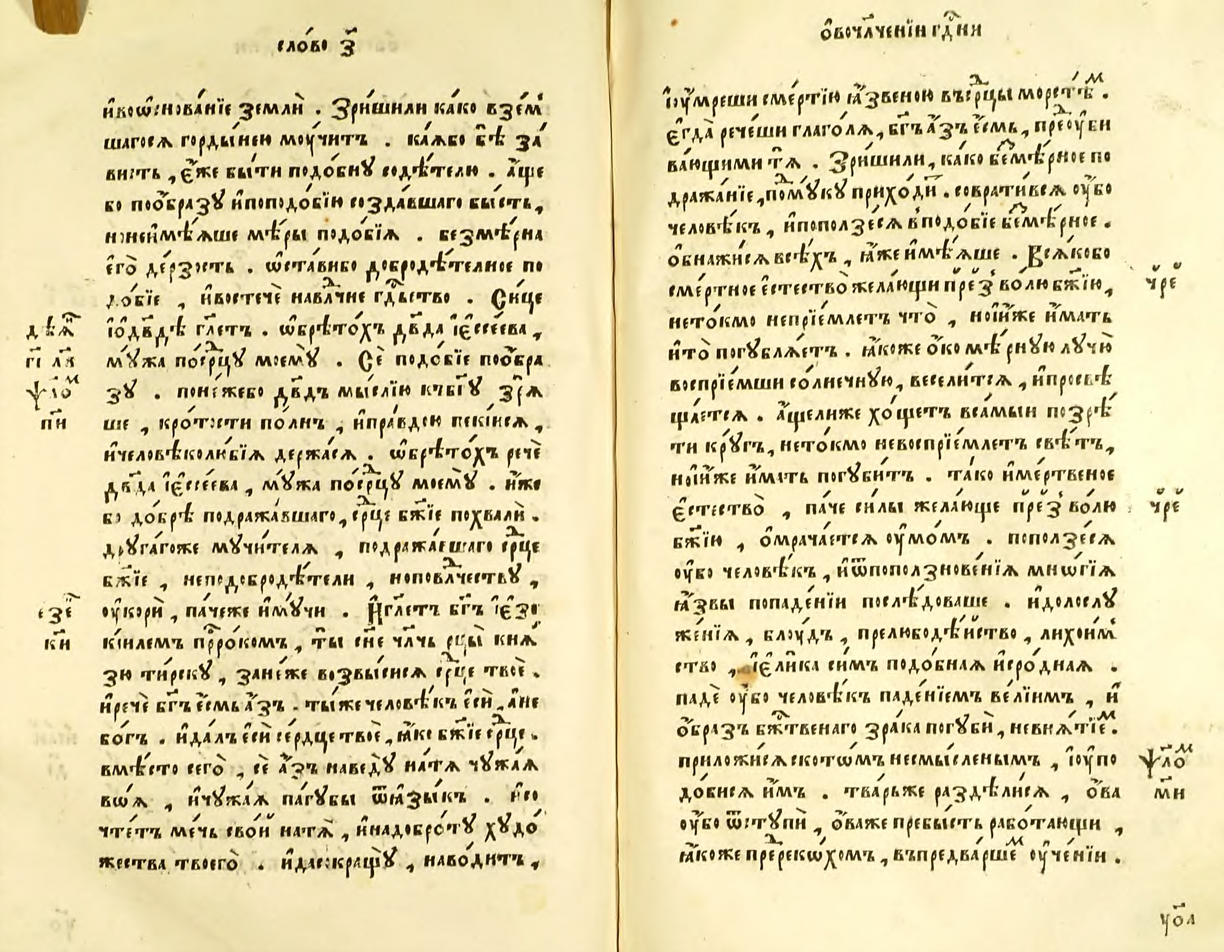 сло́во з҃
и҆восно́вані́е землѝ . Зри́шили ка́ко в̾зе́м
шагося горды́нею моу́чит . ка́ѧбо бѣ̀ за́
висть , є҆́же бы́ти подо́бну содѣ́телю . а҆́ще
бо поо́бразꙋ и҆поподо́бїю созда́вшаго бы́сть ,
но неи҆мѣ́ѧше мѣ́ры подо́бїѧ . безмѣ́рна
е҆го̀ де́рзость . ѡ҆ста́вибо добродѣ́телное по
до́бїе , и҆востечѐ навла́чне гдⷭ҇ьство . Си́це
і҆одв҃дѣ гл҃етъ . ѡ҆брѣто́хъ дв҃да і҆ессе́ева ,
му́жа посрⷣцꙋ моемꙋ̀ . Сѐ подо́бїе поо́бра
зꙋ . поне́жебо дв҃дъ мы́слїю къбг҃ꙋ зрѧ̀
ше , кро́тости по́лнъ , и҆пра́вдою пекі́йсѧ ,
и҆человѣколю́бїѧ держа́сѧ . ѡ҆брѣто́хъ речѐ
дв҃да і҆ессе́ева , му́жа посрⷣцꙋ моемꙋ̀ . и҆́же
бо до́брѣ подража́вшаго , срⷣце бж҃їе похвалѝ .
дрꙋга́гоже мꙋчи́телѧ , подража́вшаго срⷣце
бж҃їе , неподобродѣ́тели , ноповла́честву ,
оу҆корѝ , па́чеже и҆мꙋ́чи . И҆гл҃етъ бг҃ъ і҆езе
кі́илемъ прⷪ҇ро́комъ , ты̀ сн҃е чл҃чь рцы̀ кнѧ́
зю ти́рску , зане́же возвы́сисѧ срⷣце твоѐ .
и҆речѐ бг҃ъ е҆́смь а҆́зъ . ты́же человѣ́къ е҆сѝ , а҆не
бо́гъ . и҆да́лъ е҆сѝ се́рдце твоѐ , ꙗ҆́ко бж҃їе срⷣце .
вмѣ́сто сего̀ , сѐ а҆́зъ наведꙋ̀ натѧ̀ чꙋжа́ѧ
воѧ̀ , и҆чꙋжа́ѧ па́гꙋбы ѿꙗ҆зы́къ . и҆со
чте́тъ ме́чь сво́й натѧ̀ , и҆надобротꙋ̀ хꙋдо́
жества твоего̀ . и҆даскращꙋ̀ , наво́дитъ ,
дѣѧ҇
гі҃ лѕ҃
ѱало́ⷨ
пи҃
езе҇
ки҃
ѡ҆вочл҃ченїи гдⷭ҇ни
і҆оу҆́мреши сме́ртїю ꙗ҆́звеною въсрⷣцы морстѣ́ⷨ .
є҆гда̀ рече́ши глаго́лѧ , бг҃ъ а҆́зъ е҆́смь , преоу҆би
ва́ющими тѧ̀ . Зри́шили , ка́ко безмѣ́рное по
дража́нїе , помꙋ́кꙋ прихо́ди . соврати́всѧ оу҆́бо
человѣ́къ , и҆поползе́сѧ в̾подо́бїе безмѣ́рное .
ѡ҆бнажи́сѧ всѣ́хъ , ꙗ҆́же и҆мѣ́ѧше . Всѧ́кобо
сме́ртное е҆стество̀ жела́ющи пре́з̾ во́лю бж҃їю ,
нето́кмо непрїе́млетъ что̀ , нои҆́же и҆́мать
и҆то̀ погꙋблѧ́етъ . ꙗ҆́коже о҆́ко мѣ́рнꙋю лꙋчю̀
воспрїе́мши со́лнечнꙋю , весели́тсѧ , и҆просвѣ
ща́етсѧ . а҆́щелиже хо́щетъ всамы́и позрѣ́
ти крꙋ́гъ , нето́кмо невоспрїе́млетъ свѣ́тъ ,
нои҆́же и҆́мать погꙋби́тъ . та́ко и҆ме́ртвеное
є҆стество̀ , па́че си́лы жела́юще пре́з̾ во́лю
бж҃їю , ѡ҆мрача́етсѧ оу҆мо́мъ . поползе́сѧ
оу҆́бо человѣ́къ , и҆ѿпоползнове́нїѧ мно́гїѧ
ꙗ҆́звы попаде́нїи послѣ́доваше . и҆долослꙋ
же́нїѧ , блꙋ́дъ , прелюбодѣ́йство , лихои́м̾
ство , і҆є҆ли́ка си́мъ подо́бнаѧ и҆сро́днаѧ .
падѐ оу҆́бо человѣ́къ паде́нїемъ ве́лїимъ , и҆
ѻ҆́бразъ бжⷭ҇твенаго зра́ка погꙋбѝ , невнѧ́тїеⷨ .
приложи́сѧ ското́мъ несмы́сленымъ , і҆оу҆по
до́бисѧ и҆́мъ . тва́рьже раздѣли́сѧ , ѻ҆́ва
оу҆́бо ѿстꙋпѝ , ѻ҆́важе пребы́сть рабо́тающи ,
ꙗ҆́коже прⷣереко́хомъ , въпредва́ршеⷨ оу҆че́нїи .
чре̾
чре̾
ѱало́ⷨ
ми҃